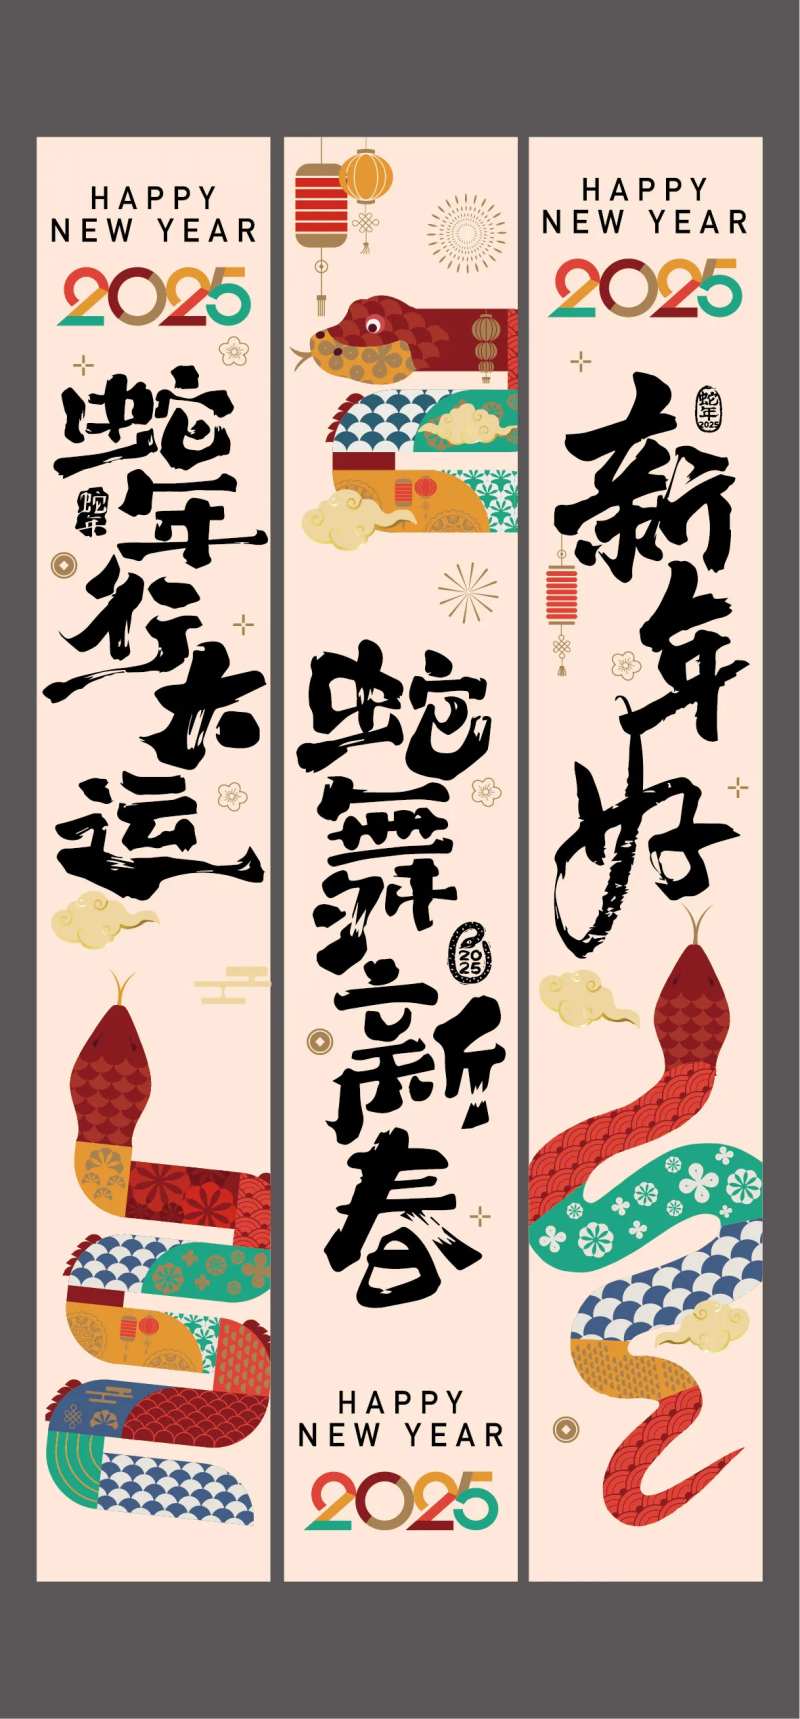 HAPPY
NEW YEAR
2025
蛇年行大运
蛇年
蛇舞新春
2025
HAPPY
NEW YEAR
2025
HAPPY
NEW YEAR
2025
新年好
蛇年
2025